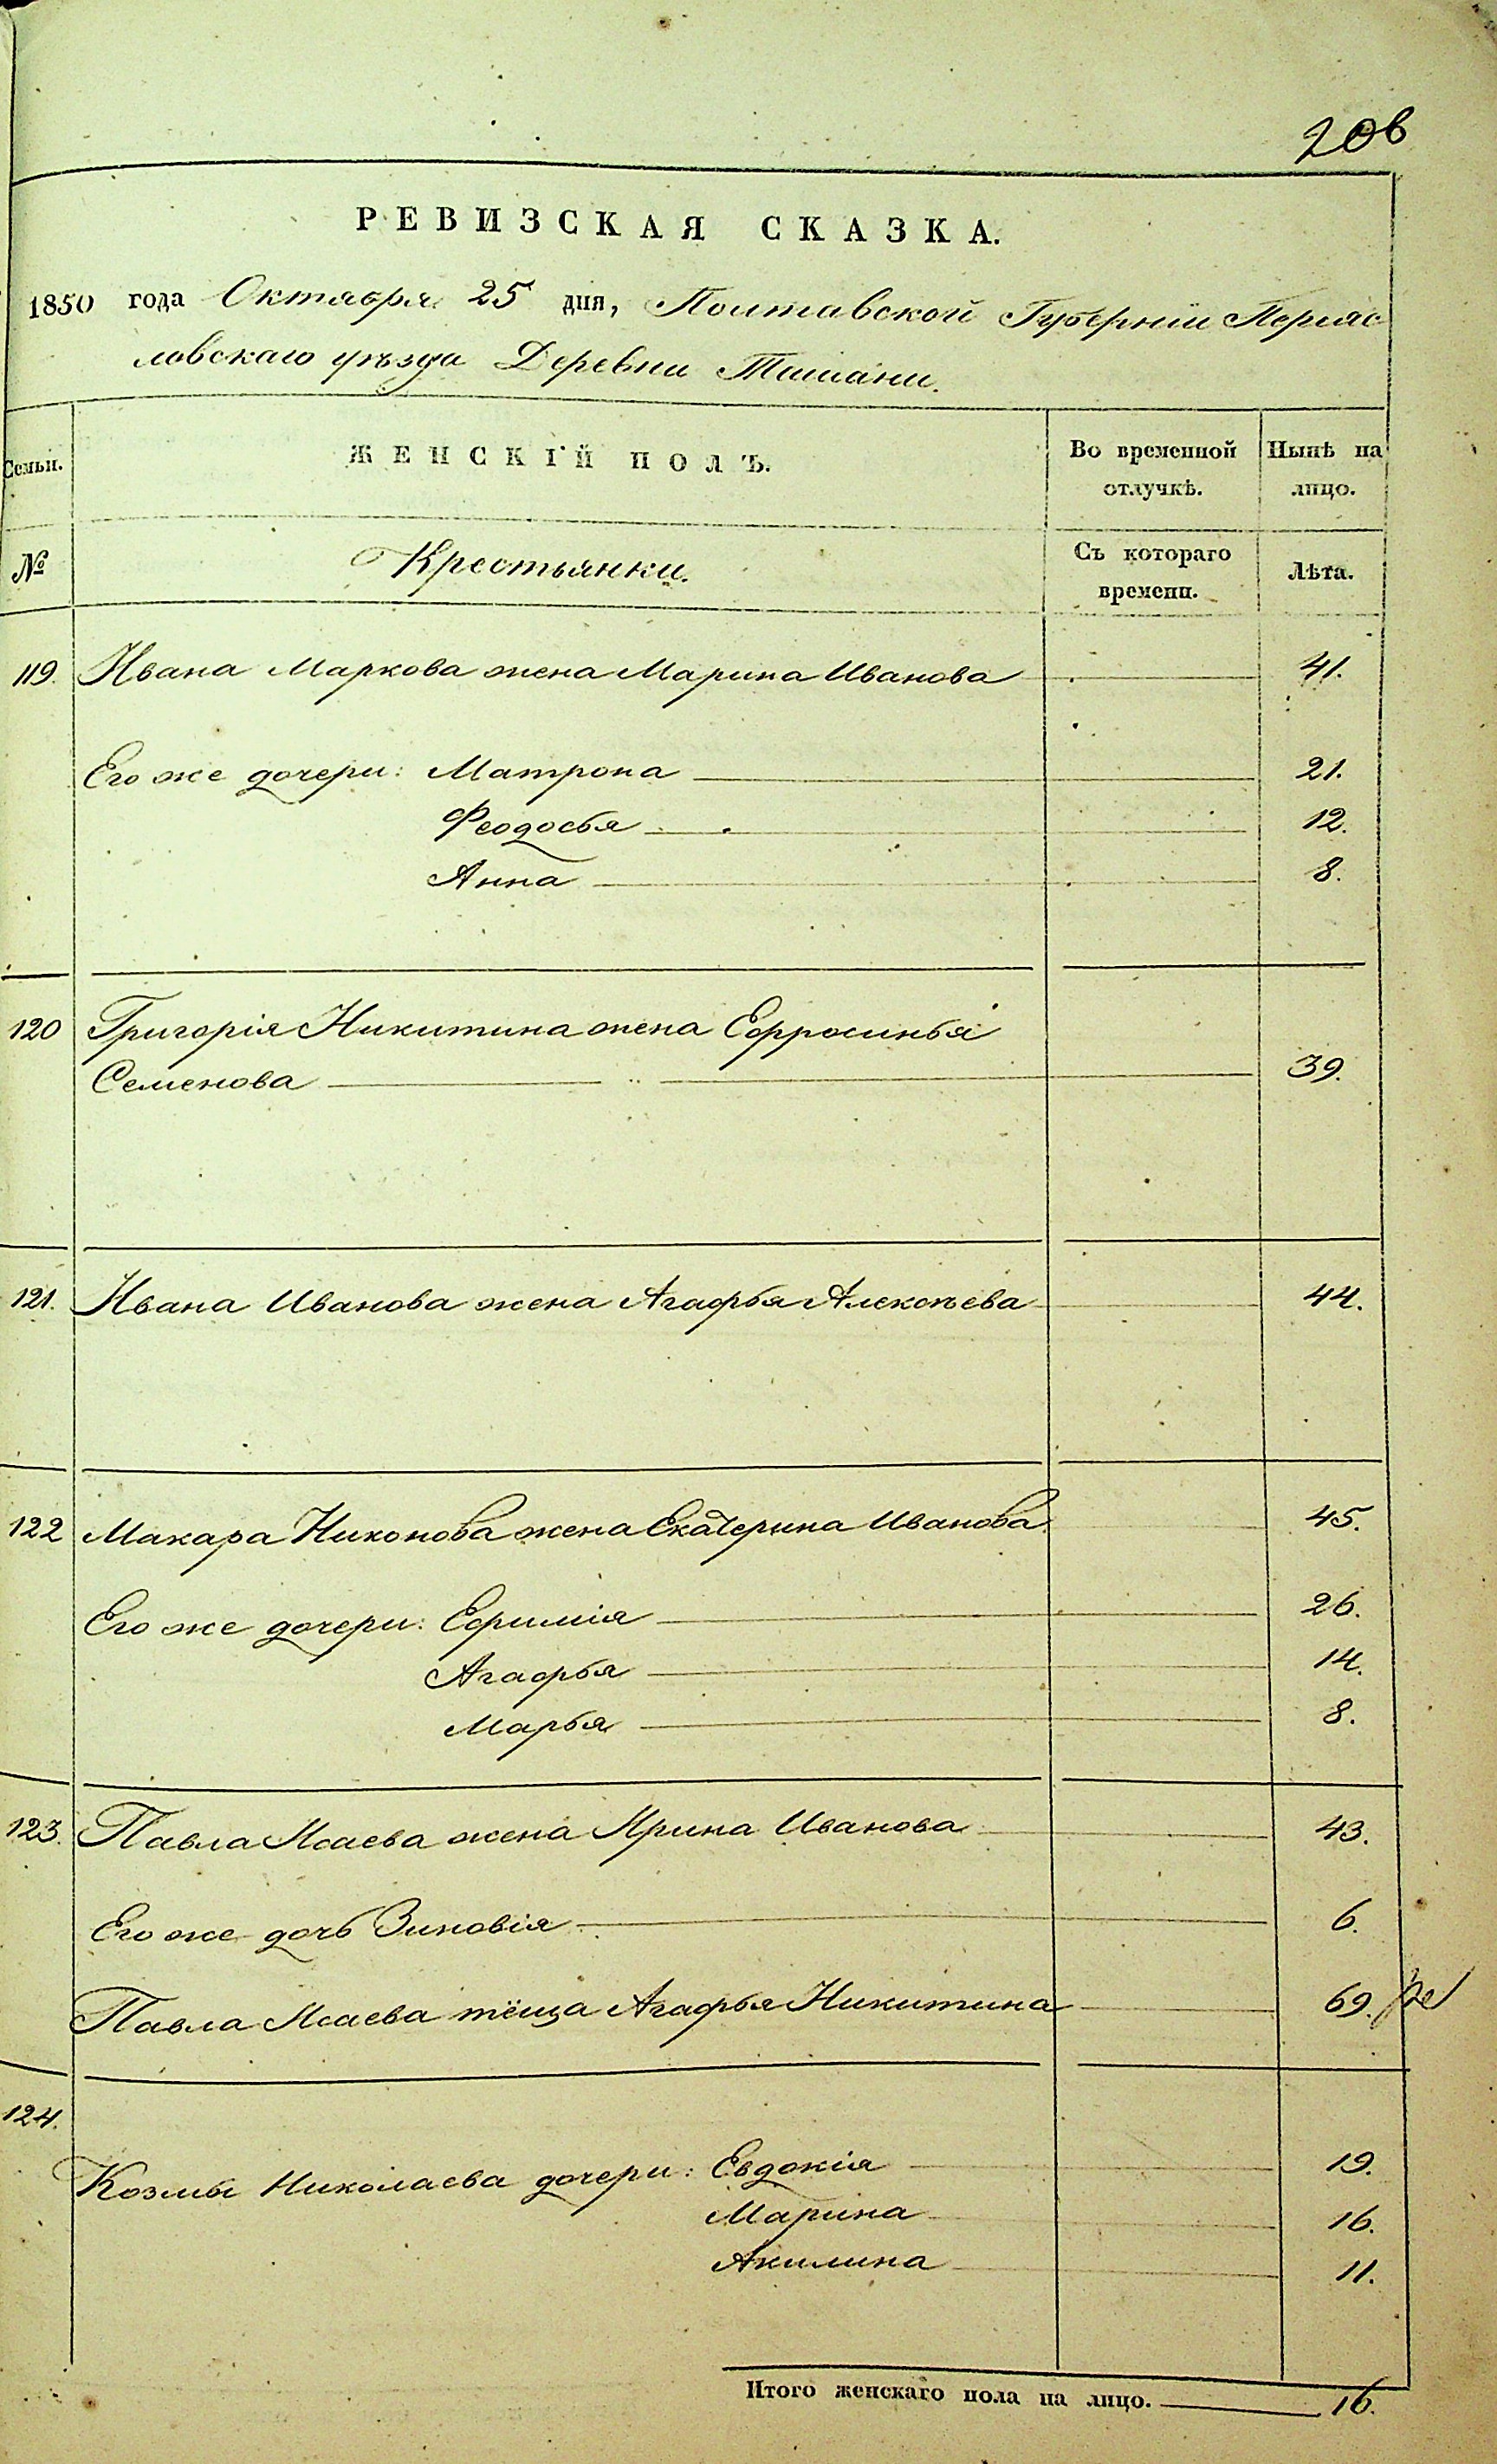 206
РЕВИЗСКАЯ СКАЗКА.
1850 года Октября 25 дня, Полтавской Губерніи Переяс
ловскаго уѣзда Деревни
Семьи. ЖЕНСКІЙ ПОЛЪ. Во временной отлучкѣ. Нынѣ на лицо.
№ Крестьянки. Съ котораго времени. Лѣта.
119. Ивана Маркова жена Марина Иванова 41.
Его же дочери: Матрона 21.
Феодосья 12.
Анна 8.
120 Григорія Никитина жена Ефросинья
Семенова 39.
121. Ивана Иванова жена Агафья Алексѣева 44.
122 Макара Никонова жена Екатерина Иванова 45.
Его же дочери: Ефимія 26.
Агафья 14.
Марья 8.
123. Павла Исаева жена Ирина Иванова 43.
Его же дочь Зиновія 6.
Павла Исаева тёща Агафья Никитина 69.
124.
Козмы Николаева дочери: Евдокія 19.
Марина 16.
Акилина 11.
Итого женскаго пола на лицо. 16.